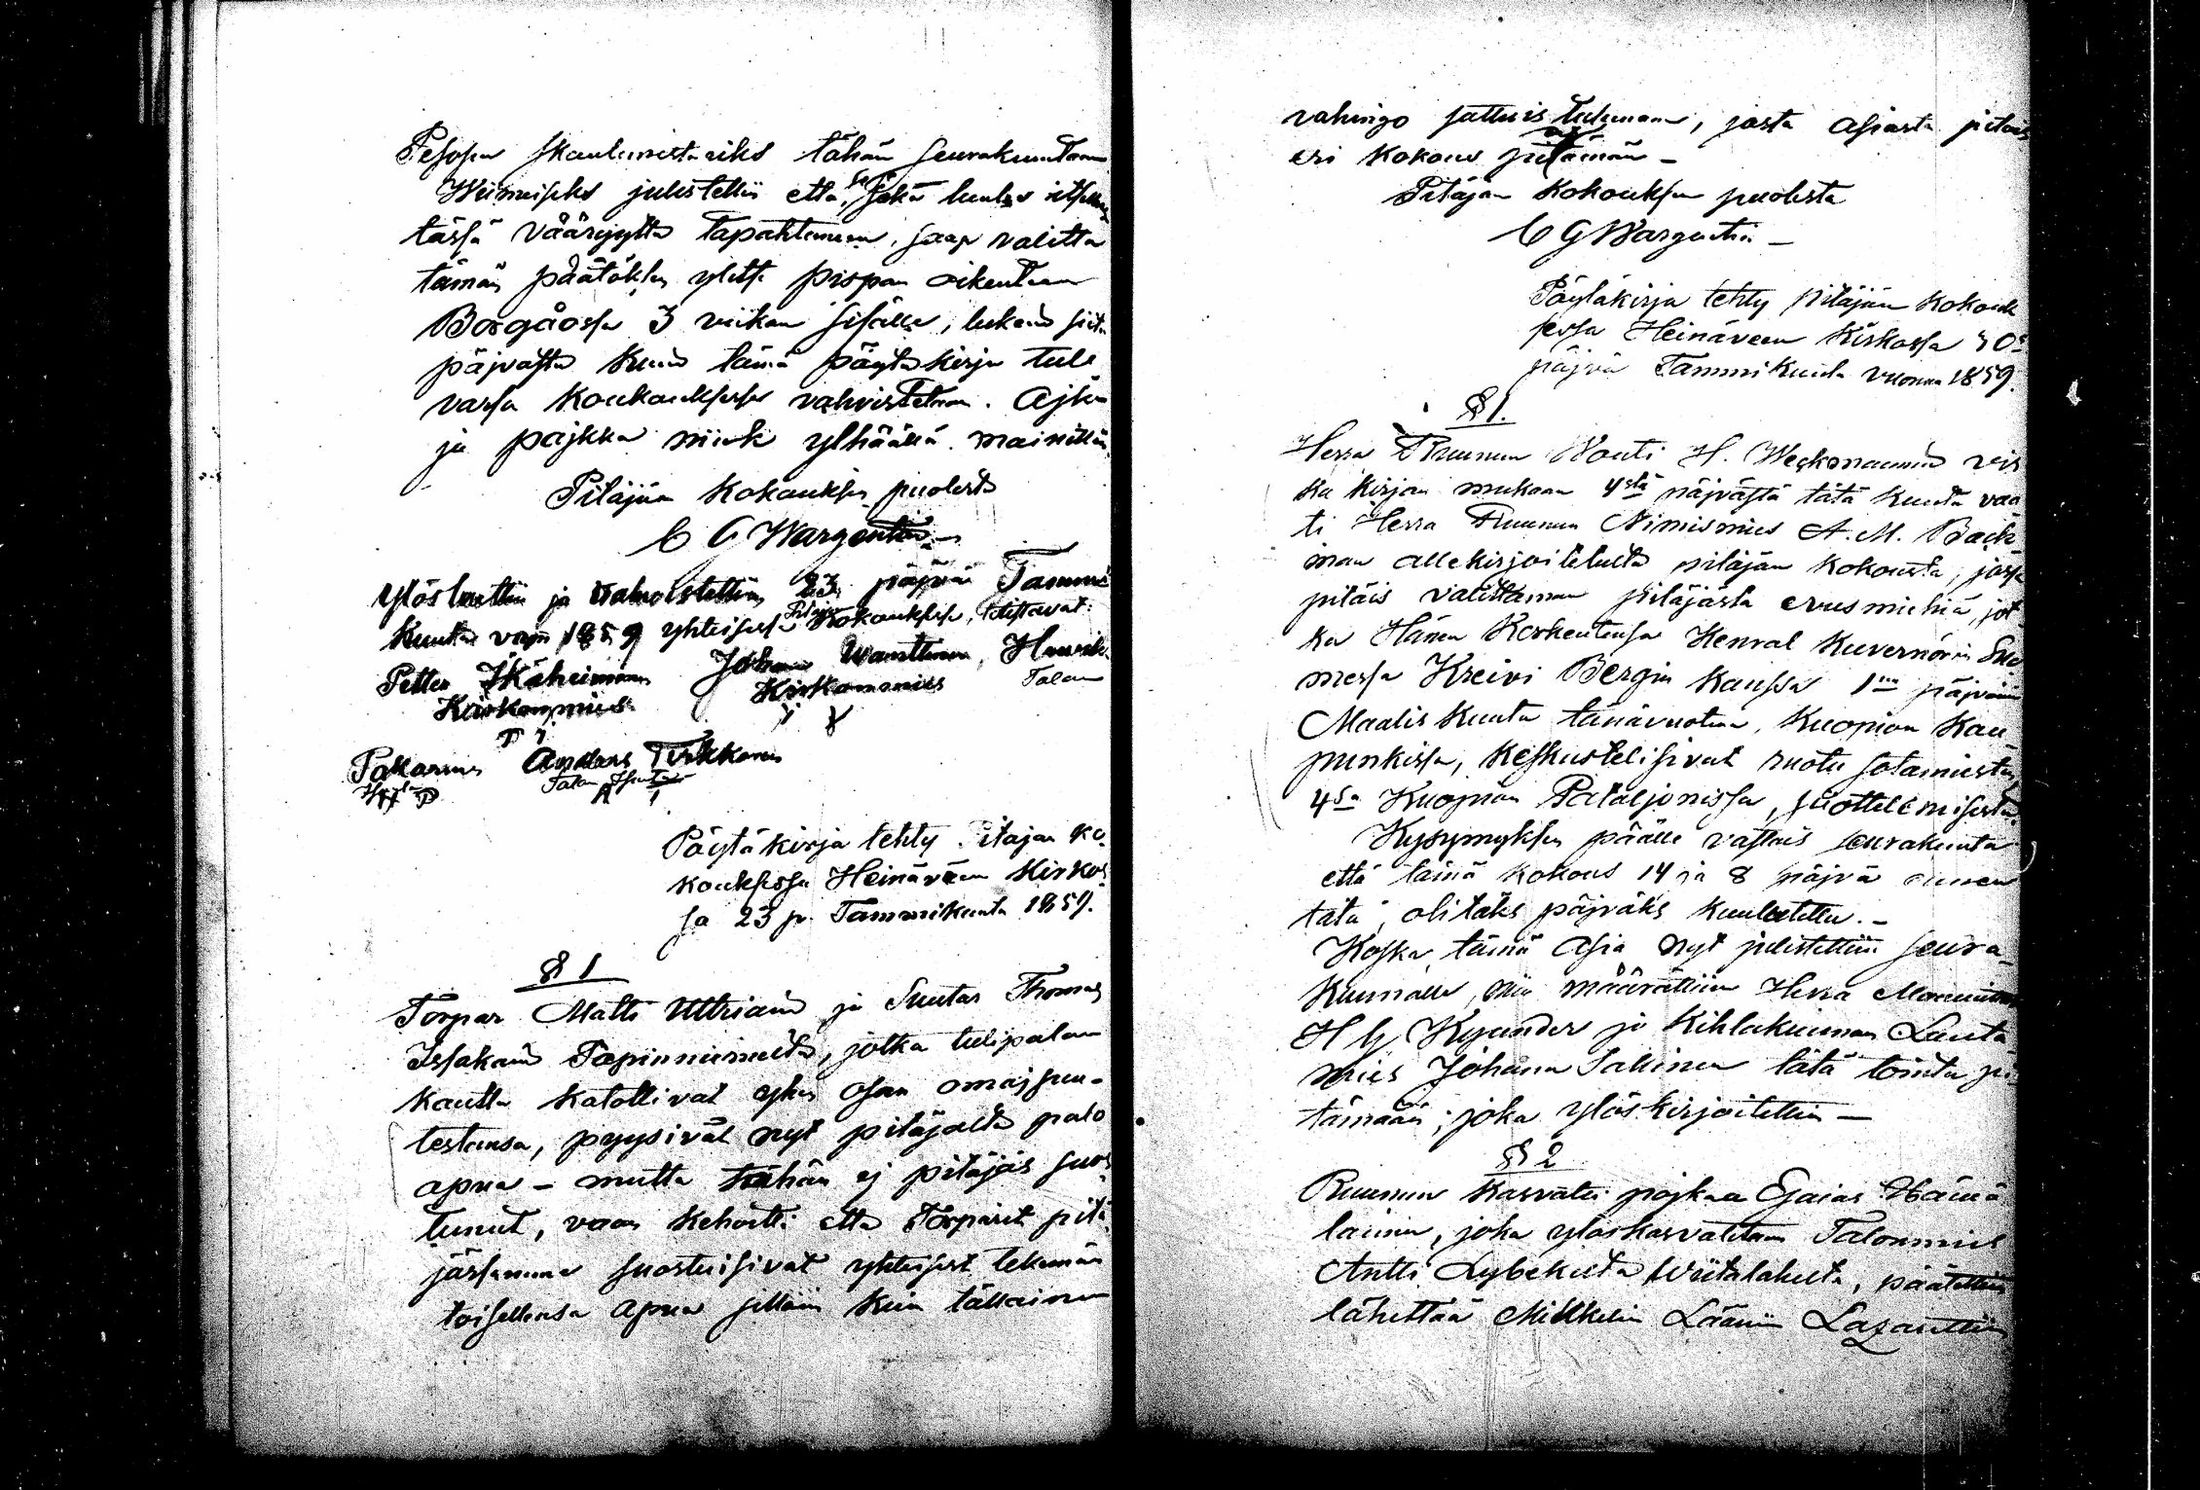 Pesosen skaulmestariks tähän seurakuntaan
Wiimiseks julistettiin että, se joka luulee itsellens
tässä vääryyttä tapahtuneen, saap valitta
tämän päätöksen ylitse pispan oikeuteen
Borgåossa 3 viikon sisälle, lukein siitä
päjvästä kuin tämä päytäkirja tule
vassa koukouksessa vahvistetaan. Ajka
ja pajkka niink ylhäällä mainittiin
Pitäjän Kokouksen puolesta
C G Wargentin
Ylösluettiin ja vahvistettiin 23 päjvä Tammi
Kuuta vuon 1859 yhteisessä Pitäjän Kokouksessa, todistavat:
Petter Ikäheimonen Johan Wänttinen, Henrik
Kirkonmies Kirkonmies Talon
Pakarinen Anders Tirkkonen
Talon Isäntä
Päytäkirja tehty Pitäjän Ko-
kouksessa Heinäveen Kirkos
sa 23 p. Tammikuuta 1859.
§ 1
Torpar Matti Uttriain ja Suutar Thomas
Issakain Papinniemeltä, jotka tulipalon
kautta katottivat yhen osan omajsuu-
testansa, pyysivät nyt pitäjältä palo
apua – mutta tähän ej pitäjäs suos
tunut, vaan kehoitti että Torparit pitä
jässämme suostuisivat yhteisest tekemän
toisellensa apua silloin kuin tällainen
vahingo sattuis tulemaan, josta asiasta pitäis
eri Kokous pitämän –
Pitäjän Kokouksen puolesta
C G Wargentin –
Päytäkirja tehty Pitäjän Kokouk
sessa Heinäveen Kirkossa 30s
päjvä Tammikuuta vuonna 1859.
§ 1.
Herra Kruunun Vouti H. Weckmannin vir
ka kirjan mukaan 4stä päjvästä tätä kuuta vaa
ti Herra Kruunun Nimismies A. M. Back
man allekirjoitetulta pitäjän kokousta, jossa
pitäis valittaman pitäjästä evusmiehiä, jot
ka Hänen Korkeutensa Kenral Kuvernörin Suo
messa Kreivi Bergin kanssa 1nä päjvänä
Maaliskuuta tänävuotena, Kuopion Kau
punkissa, keskustelisivat ruotu sotamiesten
4sä Kuopion Pataljonissa, suottelemisesta.
Kysymyksen päälle vastais seurakunta
että tämä kokous 14 ja 8 päjvä ennen
tätä, olitäks päjväks kuulutettu. –
Koska tämä asia nyt julistettiin seura
kunnalle, niin määrättiin Herra
H G Kyander ja Kihlakunnan Lauta
mies Johann Sallinen tätä tointa pi
tämään; joka ylöskirjoitettiin –
§ 2
Ruunun kasvatus pojkaa Esaias Hämä
läinen, joka yloskasvatetaan Talonmies
Antti Lybekilta Wiitalahelta, päätettiin
lähettää Mikkelin Läänin Lazarettiin